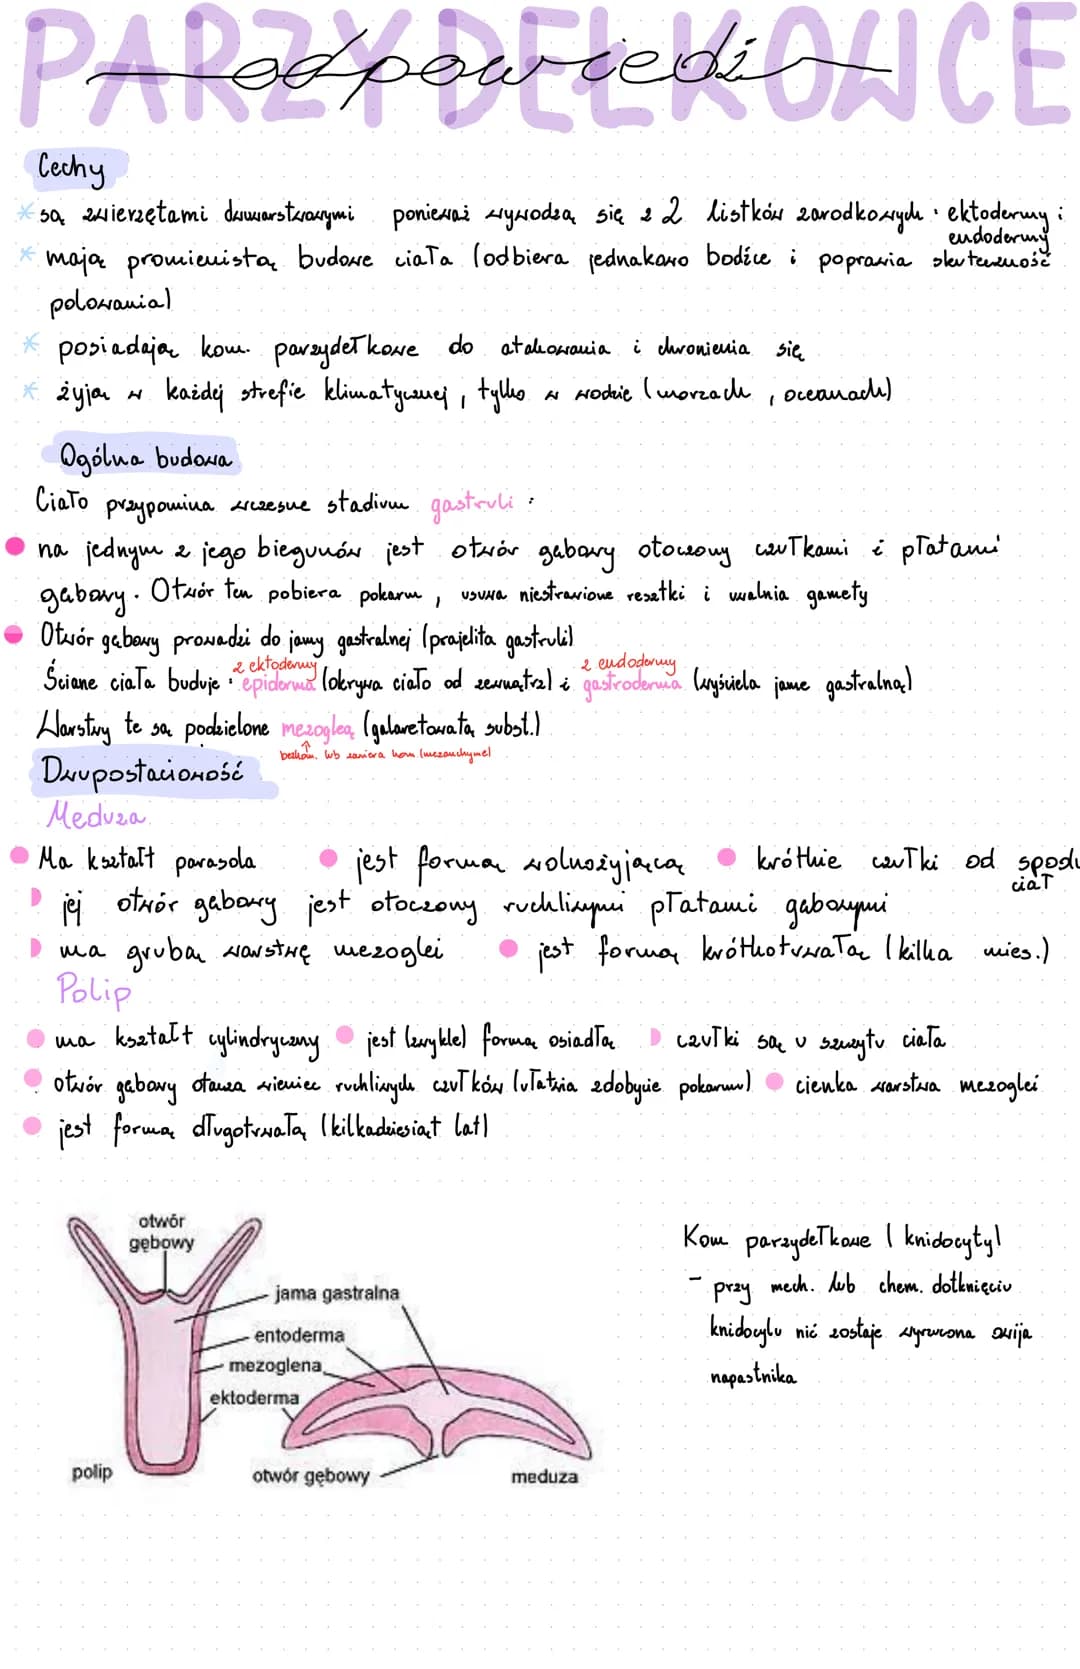 PARZYDEŁKOWCE
odpowiedzi
Cechy
* są zwierzętami dwuwarstwowymi ponieważ wywodzą się z 2 listków zarodkowych: ektodermy i
endodermy
* mają promienistą budowe ciała (odbiera jednakowo bodźce i poprawia skuteczność
polowania)
* posiadają kom. parzydełkowe do atakowania i chronienia się
* żyją w każdej strefie klimatycznej, tylko w wodzie (morzach, oceanach)
Ogólna budowa
Ciało przypomina wczesne stadium gastruli:
na jednym z jego biegunów jest otwór gębowy otoczony czułkami i płatami
gębowy. Otwór ten pobiera pokarm, usuwa niestrawione resztki i uwalnia gamety
Otwór gębowy prowadzi do jamy gastralnej (prajelita gastruli)
z ektodermy z endodermy
Ściane ciała buduje: epiderma (okrywa ciało od zewnątrz) i gastroderma (wyściela jame gastralną)
Warstwy te są podzielone mezogleą (galaretowatą subst.)
bezkom. lub zawiera kom (mezenchymę)
Dwupostaciowość
Meduza
Ma kształt parasola jest formą wolnożyjącą krótkie czułki od spodu
ciał
jej otwór gębowy jest otoczony ruchliwymi płatami gębowymi
ma grubą warstwę mezoglei jest formą krótkotrwałą (kilka mies.)
Polip
ma kształt cylindryczny jest (zwykle) formą osiadłą czułki są u szczytu ciała
otwór gębowy otacza wieniec ruchliwych czułków (ułatwia zdobycie pokarmu) cienka warstwa mezoglei
jest formą długotrwałą (kilkadziesiąt lat)
otwór
gębowy
jama gastralna
entoderma
mezoglena
ektoderma
polip
otwór gębowy
meduza
Kom parzydełkowe (knidocyty)
- przy mech. lub chem. dotknięciu
knidocylu nić zostaje wyrzucona owija
napastnika